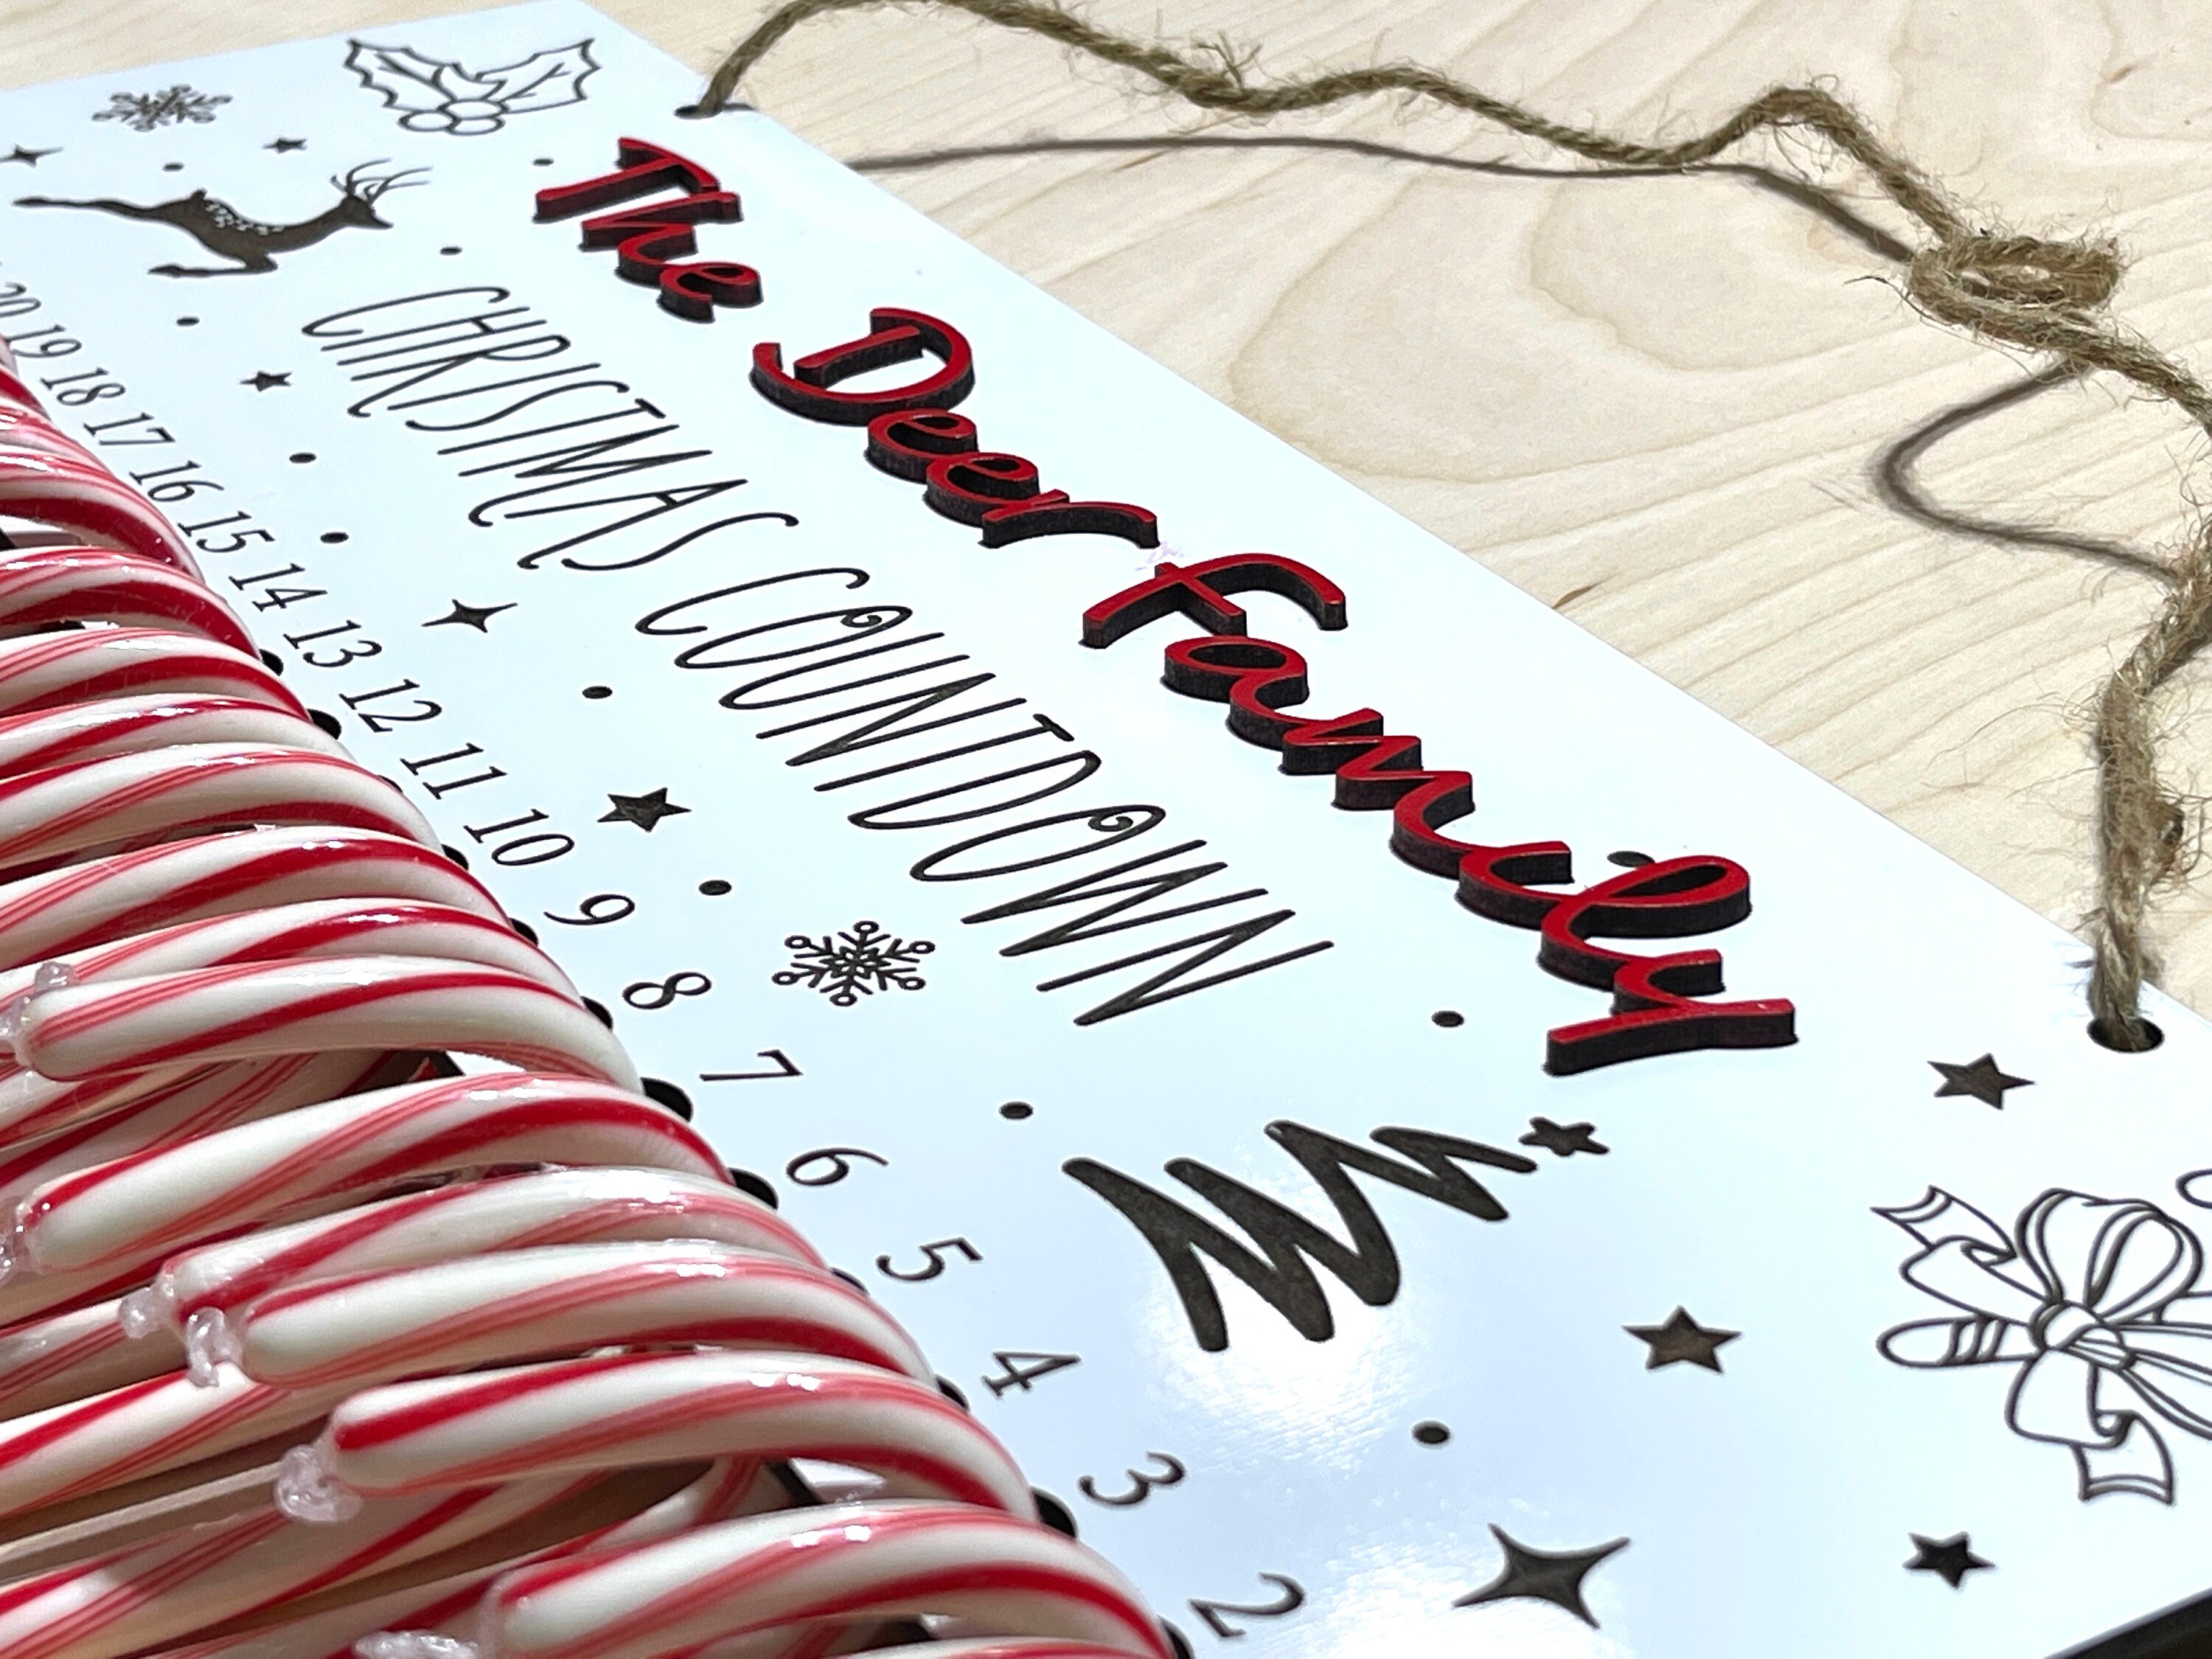 The Deer Family
CHRISTMAS COUNTDOWN
20 19 18 17 16 15 14 13 12 11 10 9 8 7 6 5 4 3 2